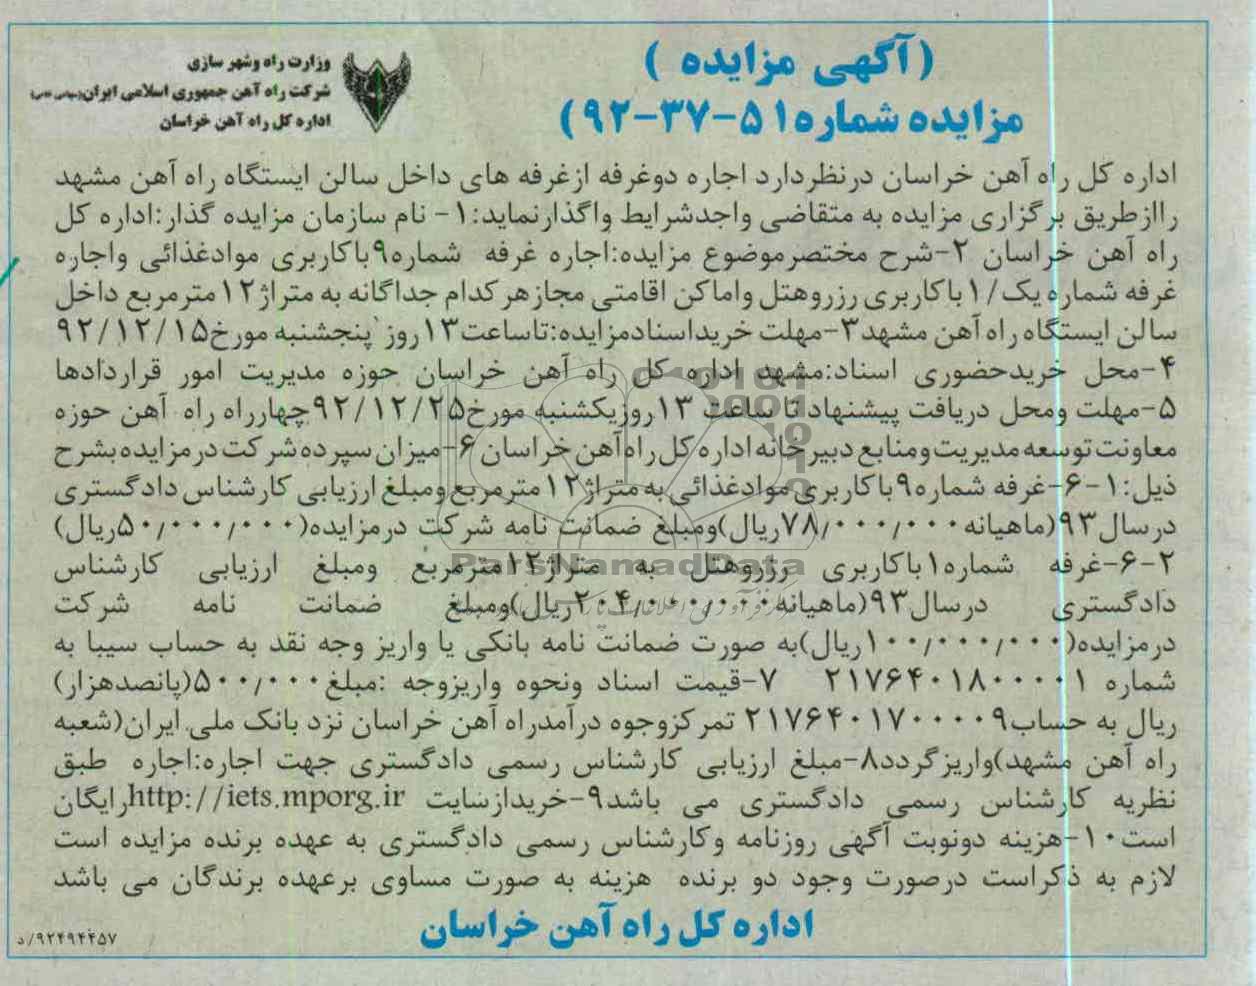 (آگهی مزایده )
مزایده شماره۵۱-۳۷-۹۲)
وزارت راه وشهر سازی
شرکت راه آهن جمهوری اسلامی ایران(سهامی خاص)
اداره کل راه آهن خراسان
اداره کل راه آهن خراسان درنظردارد اجاره دوغرفه ازغرفه های داخل سالن ایستگاه راه آهن مشهد
راازطریق برگزاری مزایده به متقاضی واجدشرایط واگذارنماید:۱- نام سازمان مزایده گذار:اداره کل
راه آهن خراسان ۲-شرح مختصرموضوع مزایده:اجاره غرفه شماره۹باکاربری موادغذائی واجاره
غرفه شماره یک/۱باکاربری رزروهتل واماکن اقامتی مجازهرکدام جداگانه به متراژ۱۲مترمربع داخل
سالن ایستگاه راه آهن مشهد۳-مهلت خریداسنادمزایده:تاساعت۱۳روز پنجشنبه مورخ۹۲/۱۲/۱۵
۴-محل خریدحضوری اسناد:مشهد اداره کل راه آهن خراسان حوزه مدیریت امور قراردادها
۵-مهلت ومحل دریافت پیشنهاد تا ساعت ۱۳روزیکشنبه مورخ۹۲/۱۲/۲۵چهارراه راه آهن حوزه
معاونت توسعه مدیریت ومنابع دبیرخانه اداره کل راه آهن خراسان ۶-میزان سپرده شرکت درمزایده بشرح
ذیل:۱-۶-غرفه شماره۹باکاربری موادغذائی به متراژ۱۲مترمربع ومبلغ ارزیابی کارشناس دادگستری
درسال۹۳(ماهیانه۷۸/۰۰۰/۰۰۰ریال)ومبلغ ضمانت نامه شرکت درمزایده(۵۰/۰۰۰/۰۰۰ریال)
۲-۶-غرفه شماره۱باکاربری رزروهتل به متراژ۱۲مترمربع ومبلغ ارزیابی کارشناس
دادگستری درسال۹۳(ماهیانه۲۰۴/۰۰۰/۰۰۰ریال)ومبلغ ضمانت نامه شرکت
درمزایده(۱۰۰/۰۰۰/۰۰۰ریال)به صورت ضمانت نامه بانکی یا واریز وجه نقد به حساب سیبا به
شماره ۲۱۷۶۴۰۱۸۰۰۰۰۱ ۷-قیمت اسناد ونحوه واریزوجه :مبلغ۵۰۰/۰۰۰(پانصدهزار)
ریال به حساب۲۱۷۶۴۰۱۷۰۰۰۰۹ تمرکزوجوه درآمدراه آهن خراسان نزد بانک ملی ایران(شعبه
راه آهن مشهد)واریزگردد۸-مبلغ ارزیابی کارشناس رسمی دادگستری جهت اجاره:اجاره طبق
نظریه کارشناس رسمی دادگستری می باشد۹-خریدازسایت http://iets.mporg.irرایگان
است۱۰-هزینه دونوبت آگهی روزنامه وکارشناس رسمی دادگستری به عهده برنده مزایده است
لازم به ذکراست درصورت وجود دو برنده هزینه به صورت مساوی برعهده برندگان می باشد
اداره کل راه آهن خراسان
۹۲۴۹۴۴۵۷/د
ParsNamadData